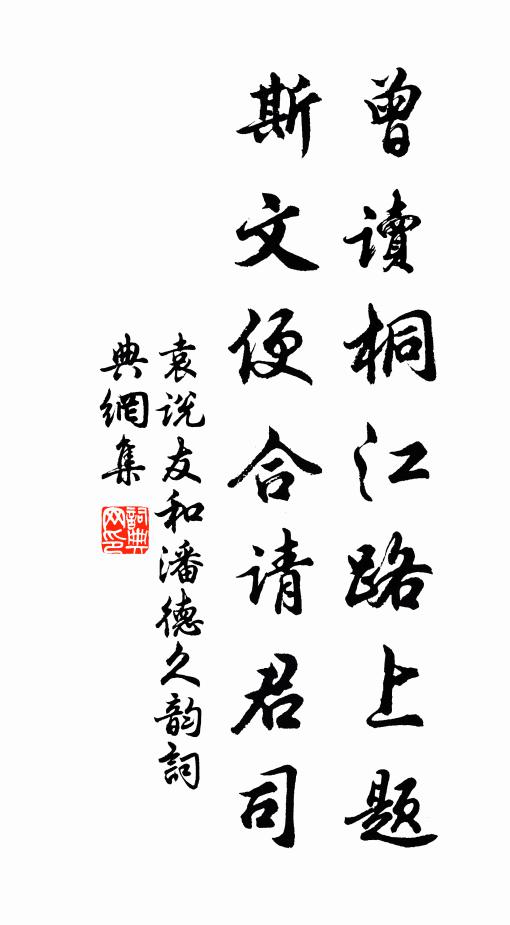 曾讀桐江路上题
斯文便合请君司
袁说友和潘德久韵詞
典網集
詞典網印